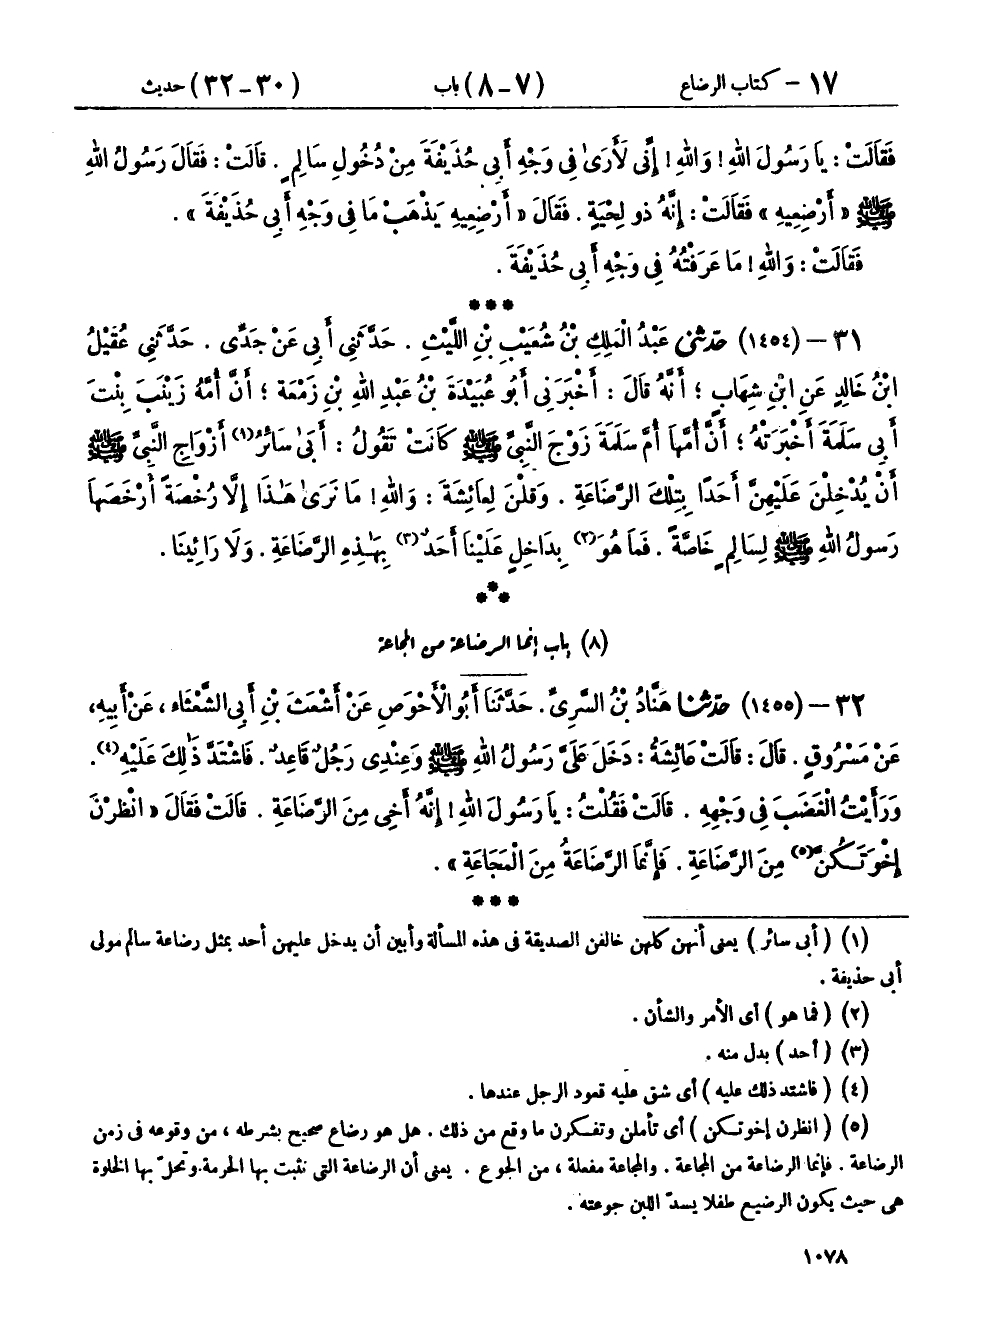 ١٧ – كتاب الرضاع (٧ – ٨) باب (٣٠ – ٣٢) حديث
فَقَالَتْ : يَا رَسُولَ اللهِ ! وَاللهِ ! إِنِّي لَأَرَىٰ فِي وَجْهِ أَبِي حُذَيْفَةَ مِنْ دُخُولِ سَالِمٍ . قَالَتْ : فَقَالَ رَسُولُ اللهِ
ﷺ « أَرْضِعِيهِ » فَقَالَتْ : إِنَّهُ ذو لِحْيَةٍ . فَقَالَ « أَرْضِعِيهِ يَذْهَبْ مَا فِي وَجْهِ أَبِي حُذَيْفَةَ » .
فَقَالَتْ : وَاللهِ ! مَا عَرَفْتُهُ فِي وَجْهِ أَبِي حُذَيْفَةَ .
***
٣١ – (١٤٥٤) حَدَّثَنِي عَبْدُ الْمَلِكِ بْنُ شُعَيْبِ بْنِ اللَّيْثِ . حَدَّثَنِي أَبِي عَنْ جَدِّي . حَدَّثَنِي عُقَيْلُ
ابْنُ خَالِدٍ عَنِ ابْنِ شِهَابٍ ؛ أَنَّهُ قَالَ : أَخْبَرَنِي أَبُو عُبَيْدَةَ بْنُ عَبْدِ اللهِ بْنِ زَمْعَة ؛ أَنَّ أُمَّهُ زَيْنَبَ بِنْتَ
أَبِي سَلَمَةَ أَخْبَرَتْهُ ؛ أَنَّ أُمَّهَا أُمَّ سَلَمَةَ زَوْجَ النَّبِيِّ ﷺ كَانَتْ تَقُولُ : أَبَىٰ سَائِرُ(١) أَزْوَاجِ النَّبِيِّ ﷺ
أَنْ يُدْخِلْنَ عَلَيْهِنَّ أَحَدًا بِتِلْكَ الرَّضَاعَةِ . وَقُلْنَ لِعَائِشَةَ : وَاللهِ ! مَا نَرَىٰ هَٰذَا إِلَّا رُخْصَةً أَرْخَصَهَا
رَسُولُ اللهِ ﷺ لِسَالِمٍ خَاصَّةً . فَمَا هُوَ(٢) بِدَاخِلٍ عَلَيْنَا أَحَدٌ(٣) بِهَٰذِهِ الرَّضَاعَةِ . وَلَا رَائِينَا .
***
(٨) باب إنما الرضاعة من المجاعة
٣٢ – (١٤٥٥) حَدَّثَنَا هَنَّادُ بْنُ السَّرِيِّ . حَدَّثَنَا أَبُو الْأَحْوَصِ عَنْ أَشْعَثَ بْنِ أَبِي الشَّعْثَاءِ ، عَنْ أَبِيهِ،
عَنْ مَسْرُوقٍ . قَالَ : قَالَتْ عَائِشَةُ : دَخَلَ عَلَيَّ رَسُولُ اللهِ ﷺ وَعِنْدِي رَجُلٌ قَاعِدٌ . فَاشْتَدَّ ذَٰلِكَ عَلَيْهِ(٤).
وَرَأَيْتُ الْغَضَبَ فِي وَجْهِهِ . قَالَتْ فَقُلْتُ : يَا رَسُولَ اللهِ ! إِنَّهُ أَخِي مِنَ الرَّضَاعَةِ . قَالَتْ فَقَالَ « انْظُرْنَ
إِخْوَتَكُنَّ(٥) مِنَ الرَّضَاعَةِ . فَإِنَّمَا الرَّضَاعَةُ مِنَ الْمَجَاعَةِ » .
***
(١) ( أبى سائر ) يعنى أنهن كلهن خالفن الصديقة فى هذه المسألة وأبين أن يدخل عليهن أحد بمثل رضاعة سالم مولى
أبى حذيفة .
(٢) ( فما هو ) أى الأمر والشأن .
(٣) ( أحد ) بدل منه .
(٤) ( فاشتد ذلك عليه ) أى شق عليه قعود الرجل عندها .
(٥) ( انظرن إخوتكن ) أى تأملن وتفكرن ما وقع من ذلك . هل هو رضاع صحيح بشرطه ، من وقوعه فى زمن
الرضاعة . فإنما الرضاعة من المجاعة . والمجاعة مفعلة ، من الجوع . يعنى أن الرضاعة التى تثبت بها الحرمة وتحلّ بها الخلوة
هى حيث يكون الرضيع طفلا يسدّ اللبن جوعته .
١٠٧٨